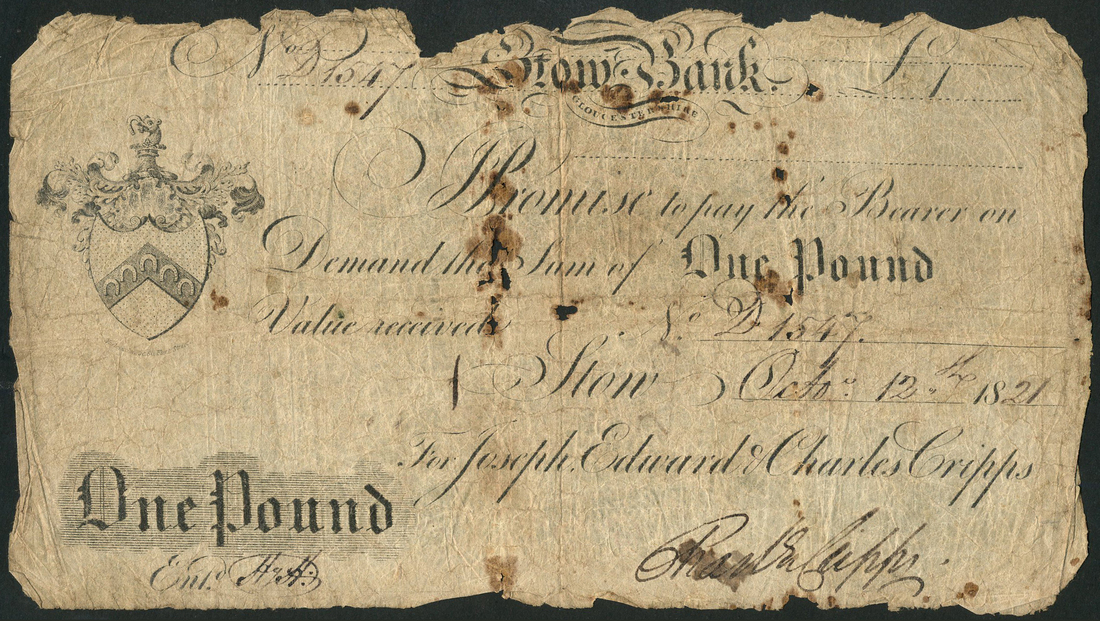 No D1547 Stow Bank. £1
GLOUCESTERSHIRE
I Promise to pay the Bearer on
Demand the Sum of One Pound
Value received No. D 1547.
Stow Octo. 12th 1821
For Joseph, Edward & Charles Cripps
One Pound
Entd. H H.
Cripps